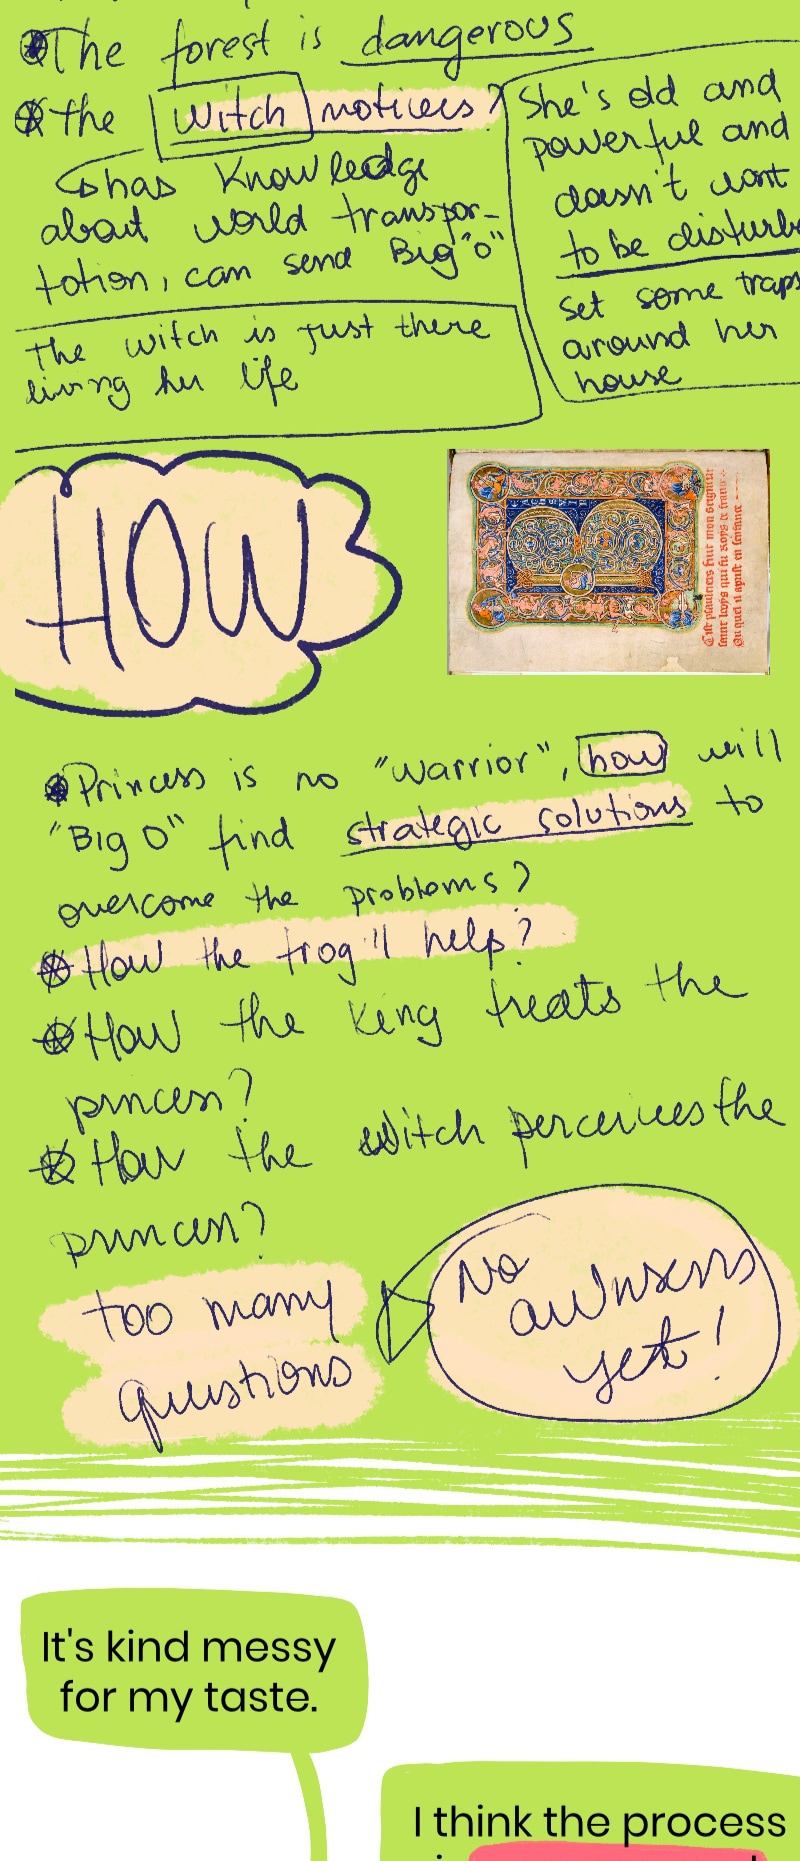 The forest is dangerous
the witch notices?
has knowledge
about world transpor-
tation, can send Big "O"
She's old and
powerful and
doesn't want
to be disturbe
set some traps
around her
house
The witch is just there
living her life
HOW
Princess is no "warrior", how will
"Big O" find strategic solutions to
overcome the problems?
How the frog'll help?
How the king treats the
princess?
How the witch perceives the
princess?
too many
questions
No
awnsers
yet!
It's kind messy
for my taste.
I think the process